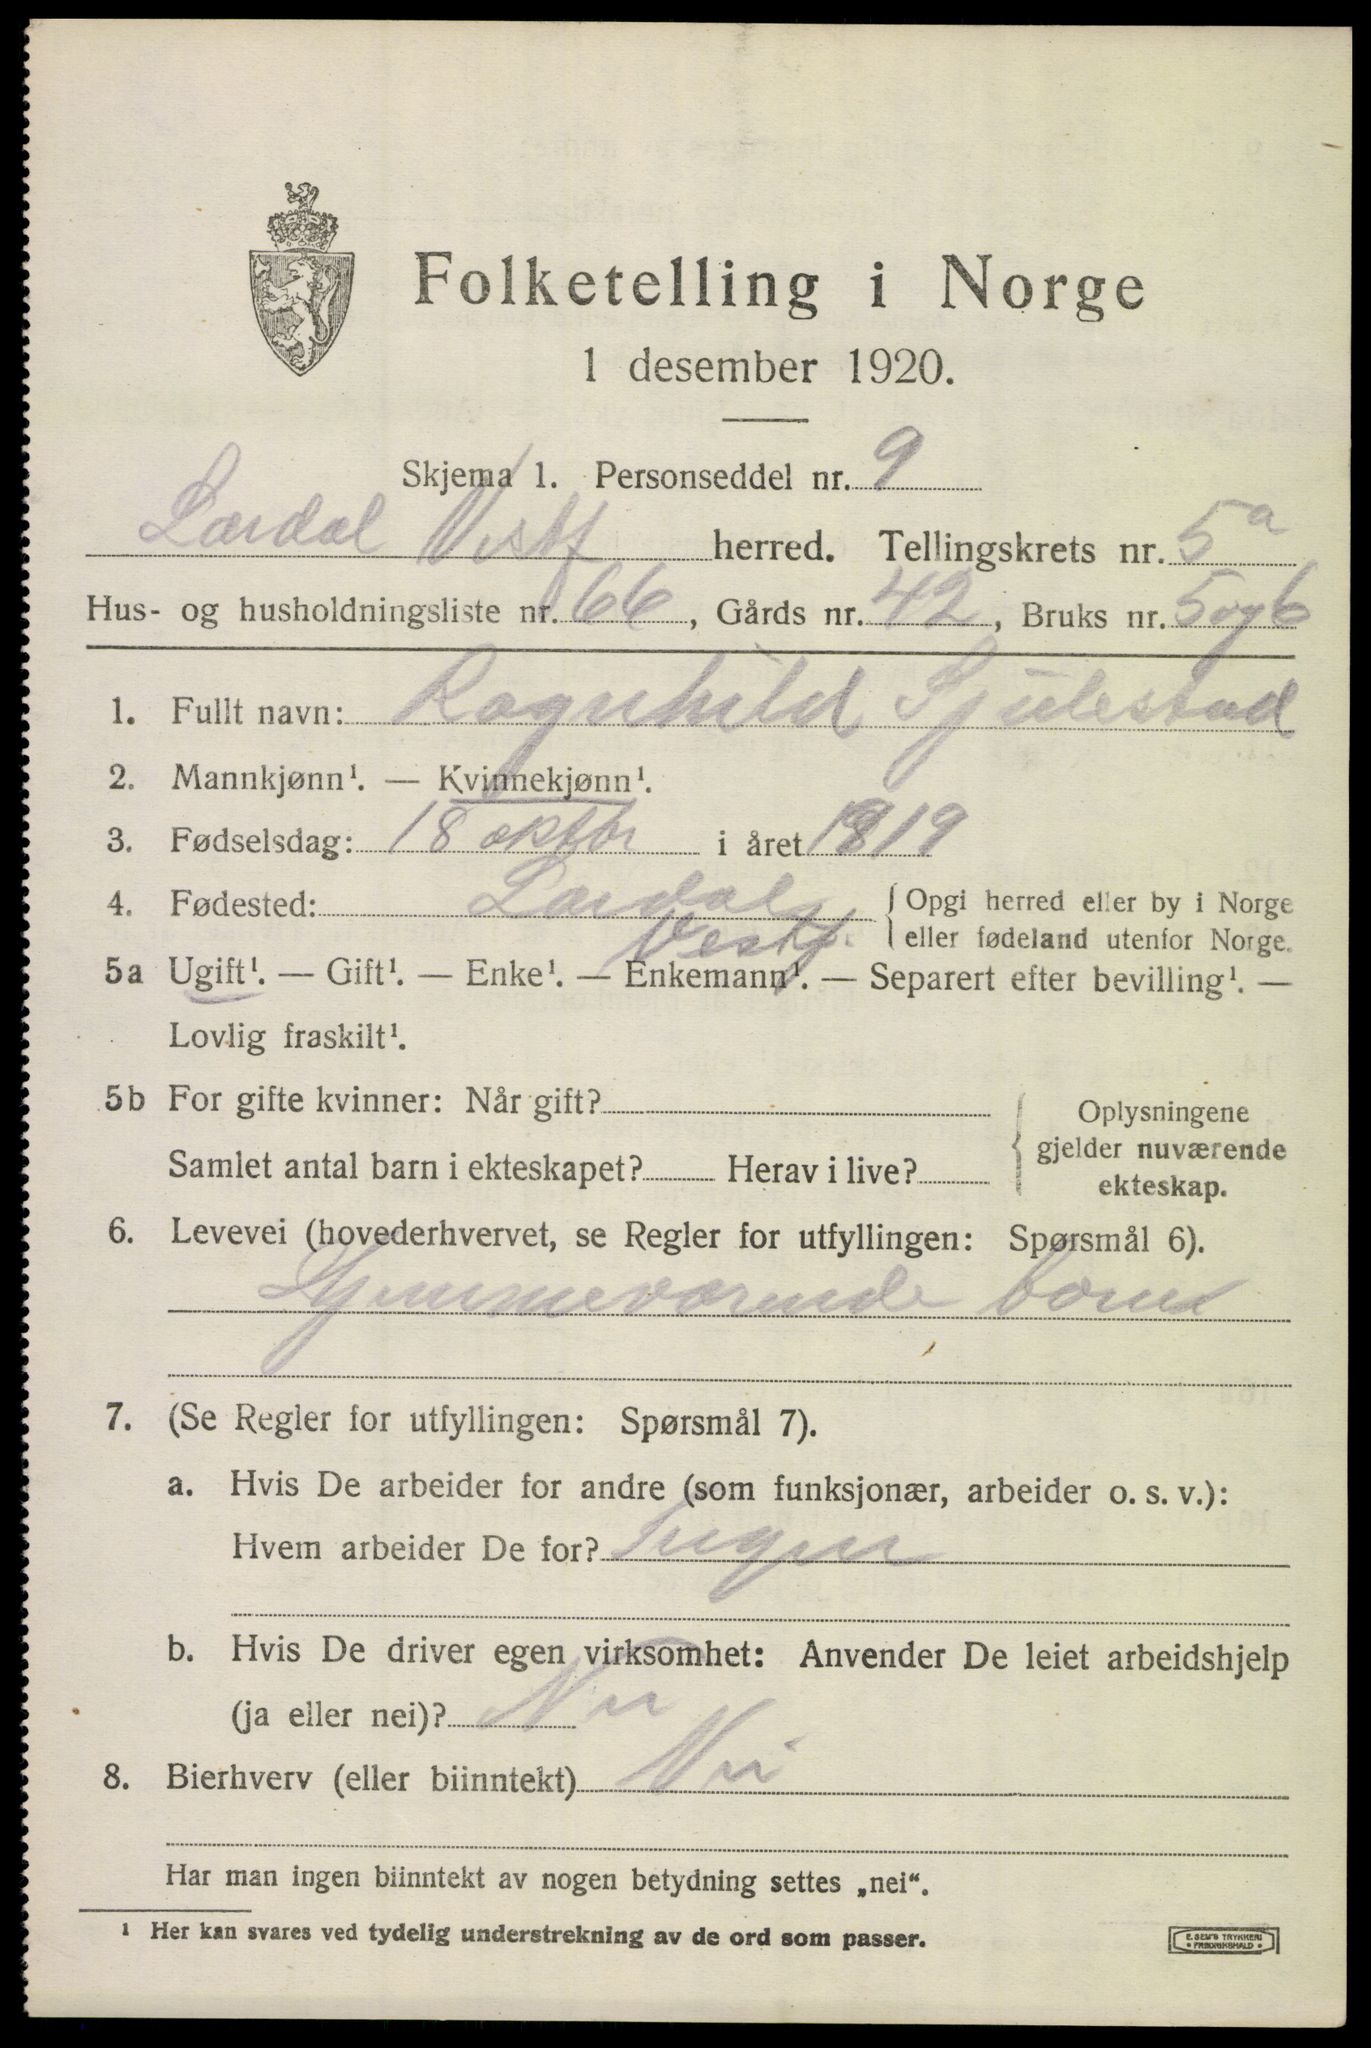 Folketelling i Norge
1 desember 1920.
Skjema 1. Personseddel nr. 9
Lardal Vestf herred. Tellingskrets nr. 5a
Hus- og husholdningsliste nr. 66, Gårds nr. 42, Bruks nr. 5 og 6
1. Fullt navn: Ragnhild Sjulestad
2. Mannkjønn¹. — Kvinnekjønn¹.
3. Fødselsdag: 18 oktbr i året 1919
4. Fødested: Lardal { Opgi herred eller by i Norge
Vestf. eller fødeland utenfor Norge.
5a Ugift¹. — Gift¹. — Enke¹. — Enkemann¹. — Separert efter bevilling¹. —
Lovlig fraskilt¹.
5b For gifte kvinner: Når gift? { Oplysningene
gjelder nuværende
Samlet antal barn i ekteskapet? Herav i live? ekteskap.
6. Levevei (hovederhvervet, se Regler for utfyllingen: Spørsmål 6).
Hjemmeværende barn
7. (Se Regler for utfyllingen: Spørsmål 7).
a. Hvis De arbeider for andre (som funksjonær, arbeider o. s. v.):
Hvem arbeider De for? Ingen
b. Hvis De driver egen virksomhet: Anvender De leiet arbeidshjelp
(ja eller nei)? Nei
8. Bierhverv (eller biinntekt) Nei
Har man ingen biinntekt av nogen betydning settes „nei“.
¹ Her kan svares ved tydelig understrekning av de ord som passer.
E. SEM'S TRYKKERI
• FREDRIKSHALD •